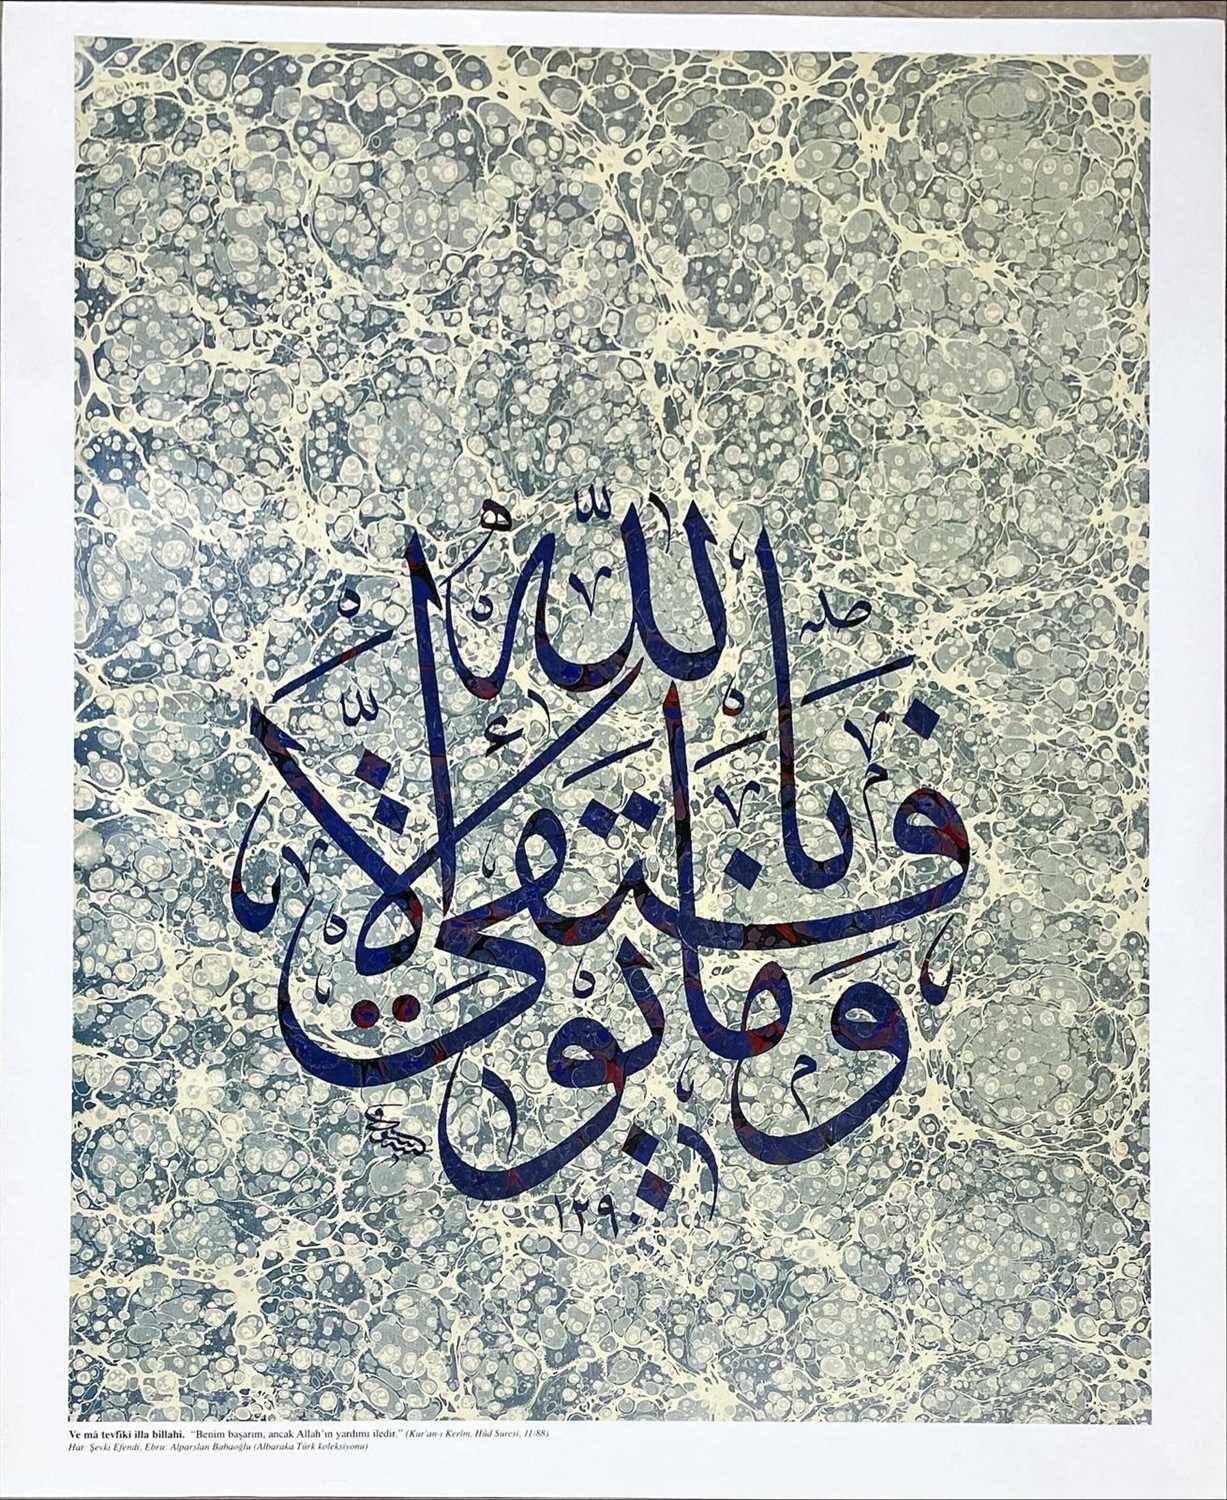 وَمَا تَوْفِيقِي إِلَّا بِاللهِ
١٢٩٠
Ve mâ tevfîkî illa billahi. “Benim başarım, ancak Allah’ın yardımı iledir.” (Kur’an-ı Kerîm, Hûd Suresi, 11/88)
Hat: Şevki Efendi, Ebru: Alparslan Babaoğlu (Albaraka Türk koleksiyonu)